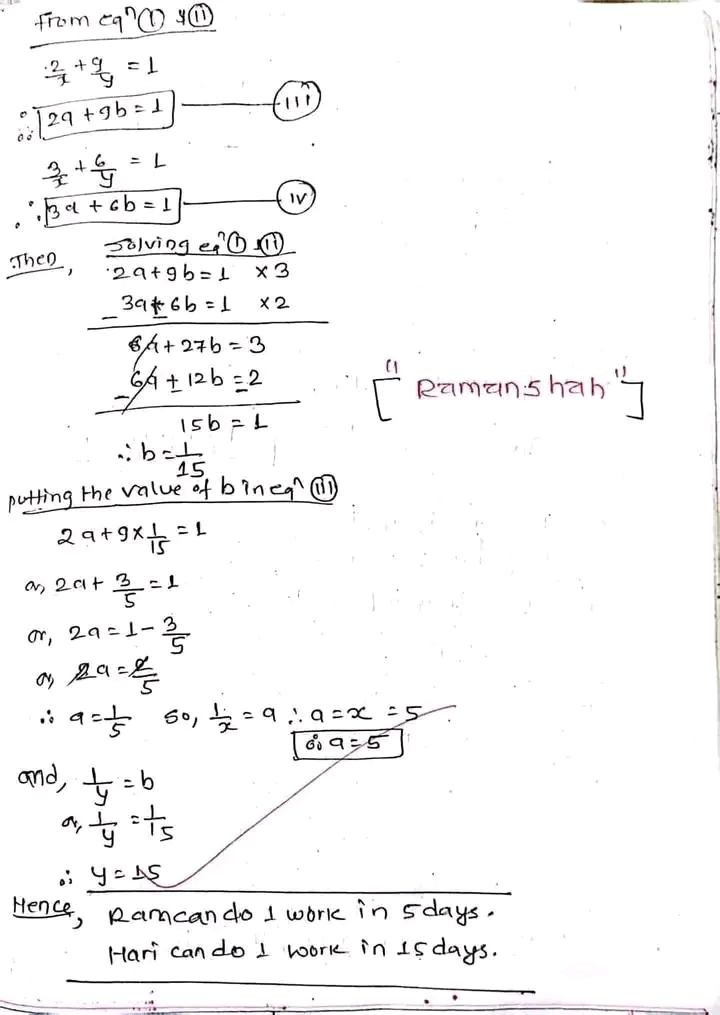 From eqⁿ (I) & (II)
2/x + 9/y = 1
∴ 2a + 9b = 1 —— (iii)
3/x + 6/y = 1
∴ 3a + 6b = 1 —— (iv)
Then, Solving eqⁿ (I) (II)
2a + 9b = 1 × 3
3a + 6b = 1 × 2
- -
6a + 27b = 3
6a + 12b = 2
- - -
["Ramanshah"]
15b = 1
∴ b = 1/15
putting the value of b in eqⁿ (III)
2a + 9 × 1/15 = 1
or, 2a + 3/5 = 1
or, 2a = 1 - 3/5
or, 2a = 2/5
∴ a = 1/5 so, 1/x = a ∴ a = x = 5
∴ a = 5
and, 1/y = b
or, 1/y = 1/15
∴ y = 15
Hence, Ram can do 1 work in 5 days.
Hari can do 1 work in 15 days.